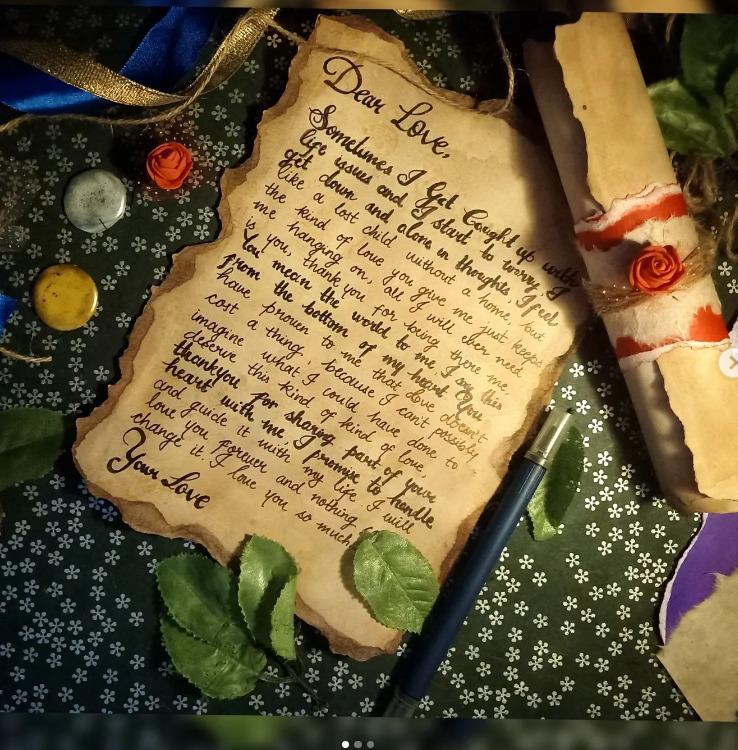 Dear Love,
Sometimes I Get Caught up with
life issues and I start to worry, I
get down and alone in thoughts, I feel
like a lost child without a home, but
the kind of love you give me just keeps
me hanging on, all I will ever need
is you, thank you for being there me,
You mean the world to me, I say this
from the bottom of my heart. You
have proven to me that love doesn't
cost a thing, because I can't possibly
imagine what I could have done to
deserve this kind of kind of love,
thankyou For sharing part of your
heart with me, I promise to handle
and guide it with my life I will
love you Forever and nothing
change it. I love you so much
Your Love